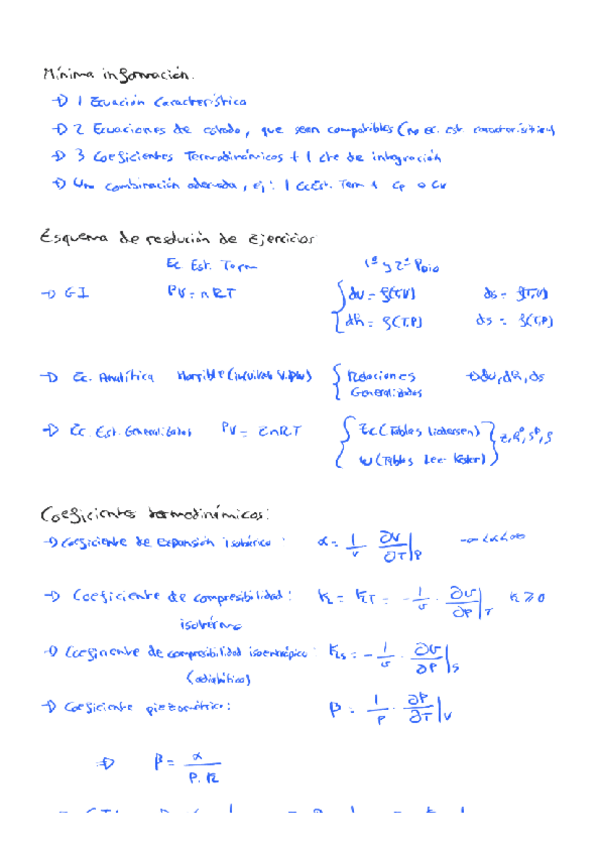 Mínima información.
→ 1 Ecuación Característica
→ 2 Ecuaciones de estado, que sean compatibles (no ec. est. característica)
→ 3 Coeficientes Termodinámicos + 1 cte de integración
→ Una combinación adecuada, ej: 1 Ec Est. Term 1 cp o cv
Esquema de resolución de Ejercicios
Ec Est. Term 1º y 2º Ppio
→ GI PV = nRT { du = f(T,V) ds = f(T,V)
dh = f(T,P) ds = f(T,P)
→ Ec. Analítica Horrible { Relaciones → du, dh, ds
Generalizadas
→ Ec. Est. Generalizadas PV = ZnRT { Zc (Tablas)
ω (Tablas Lee Kesler) }
Coeficientes termodinámicos:
→ coeficiente de expansión isobárico: α = 1/v · ∂V/∂T|P -∞<α<∞
→ Coeficiente de compresibilidad: K = KT = - 1/v · ∂v/∂P|T K ≥ 0
isotérmo
→ Coeficinente de compresibilidad isoentrópico: Ks = - 1/v · ∂v/∂P|S
(adiabático)
→ Coeficiente piezométrico: β = 1/P · ∂P/∂T|V
⇒ β = α / P·K